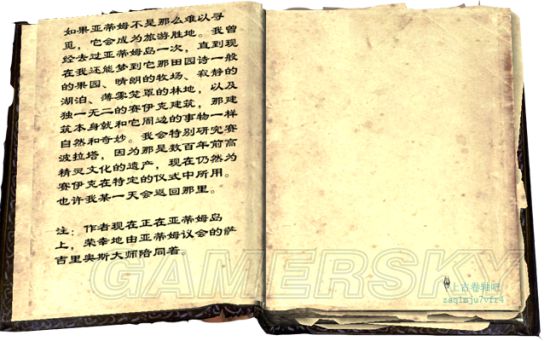 如果亚蒂姆不是那么难以寻
觅，它会成为旅游胜地。我曾
经去过亚蒂姆岛一次，直到现
在我还能梦到它那田园诗一般
的果园、晴朗的牧场、寂静的
湖泊、薄雾笼罩的林地，以及
独一无二的赛伊克建筑，那建
筑本身就和它周边的事物一样
自然和奇妙。我会特别研究赛
波拉塔，因为那是数百年前高
精灵文化的遗产，现在仍然为
赛伊克在特定的仪式中所用。
也许我某一天会返回那里。
注：作者现在正在亚蒂姆岛
上，荣幸地由亚蒂姆议会的萨
吉里奥斯大师陪同着。
GAMERSKY
上古卷轴吧
zaq1mju7vfr4